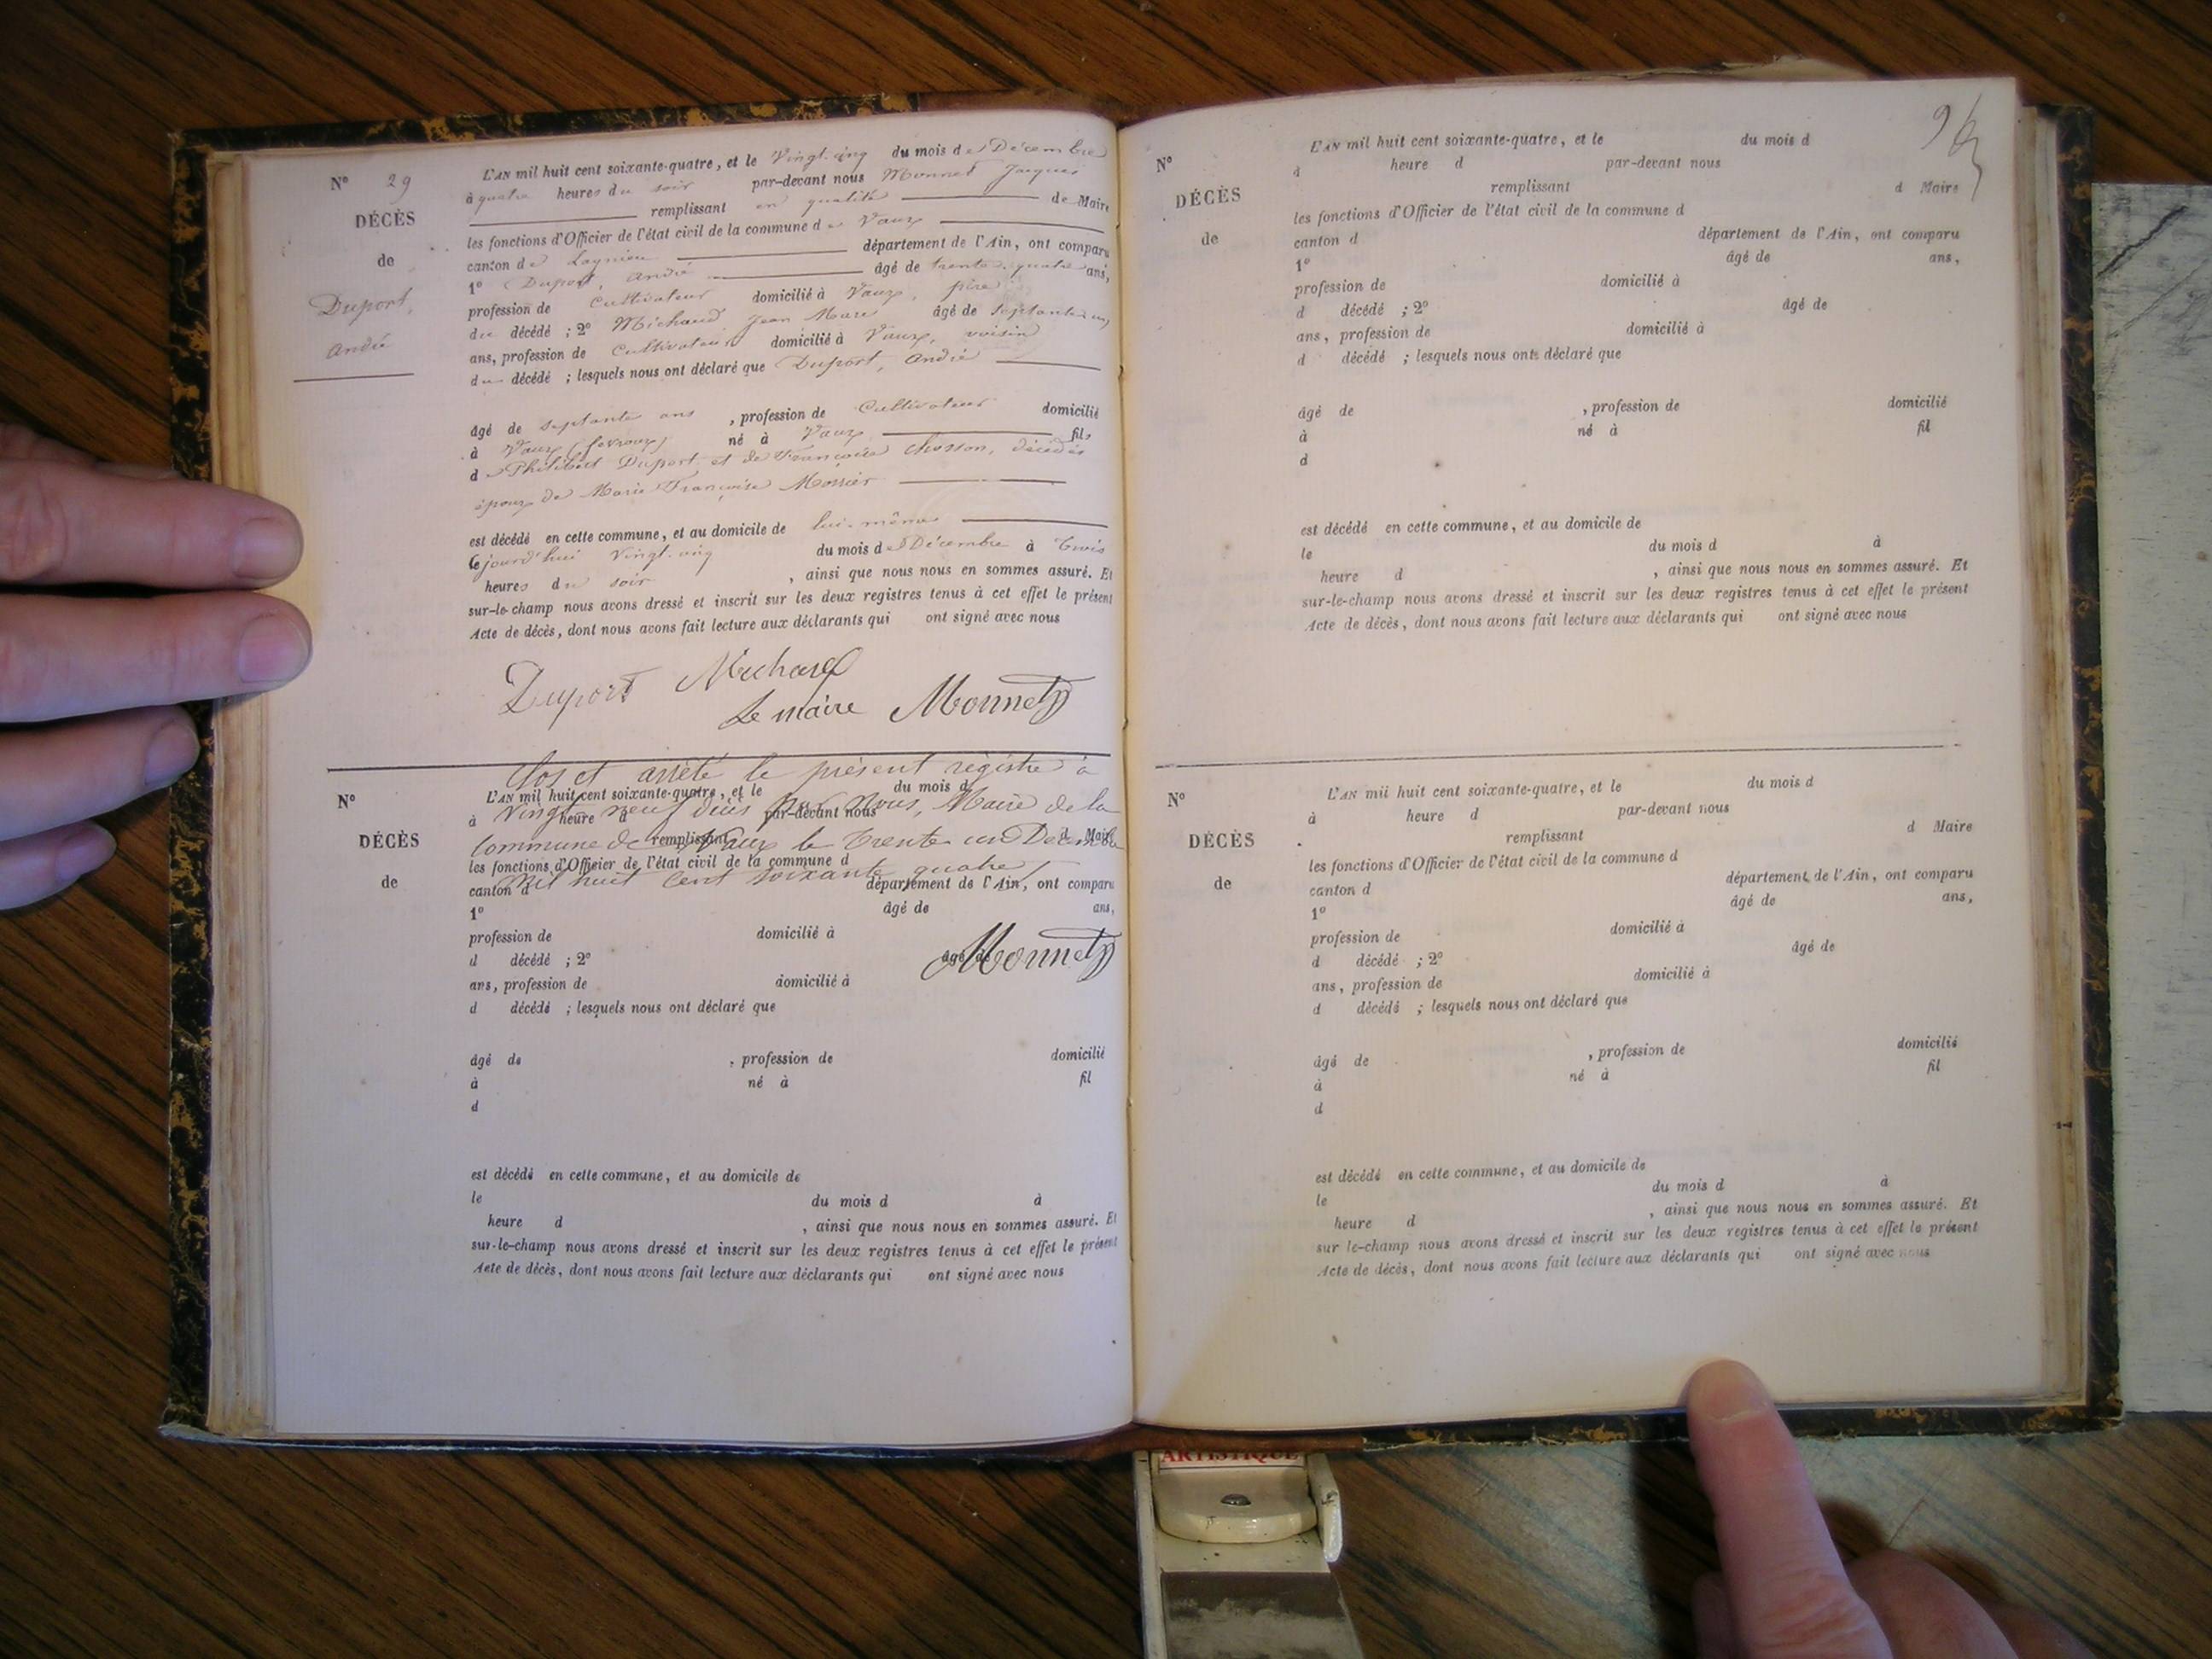 N° 29
DÉCÈS
de
Duport,
André
L'AN mil huit cent soixante-quatre, et le Vingt-cinq du mois de Décembre
à quatre heures du soir par-devant nous Monnet Jacques
remplissant en qualité de Maire
les fonctions d'Officier de l'état civil de la commune de Vaux
canton de Lagnieu département de l'Ain, ont comparu
1° Duport, André âgé de trente-quatre ans,
profession de Cultivateur domicilié à Vaux,
du décédé ; 2° Michaud Jean Marie âgé de septante-un
ans, profession de Cultivateur domicilié à Vaux, voisin
du décédé ; lesquels nous ont déclaré que Duport, André
âgé de septante ans , profession de Cultivateur domicilié
à Vaux né à Vaux fils
de Philibert Duport et de Françoise Chosson, décédés
époux de Marie Françoise
est décédé en cette commune, et au domicile de lui-même
cejourd'hui Vingt-cinq du mois de Décembre à Trois
heures du soir , ainsi que nous nous en sommes assuré. Et
sur-le-champ nous avons dressé et inscrit sur les deux registres tenus à cet effet le présent
Acte de décès, dont nous avons fait lecture aux déclarants qui ont signé avec nous
Duport Michaud
Le maire Monnet
Clos et arrêté le présent registre à
Vingt neuf décès par Nous, Maire de la
Commune de Vaux le Trente un Décembre
Mil huit Cent soixante quatre
Monnet
N°
DÉCÈS
de
L'AN mil huit cent soixante-quatre, et le du mois d
à heure d par-devant nous
remplissant d Maire
les fonctions d'Officier de l'état civil de la commune d
canton d département de l'Ain, ont comparu
1° âgé de ans,
profession de domicilié à
d décédé ; 2° âgé de
ans, profession de domicilié à
d décédé ; lesquels nous ont déclaré que
âgé de , profession de domicilié
à né à fil
d
est décédé en cette commune, et au domicile de
le du mois d à
heure d , ainsi que nous nous en sommes assuré. Et
sur-le-champ nous avons dressé et inscrit sur les deux registres tenus à cet effet le présent
Acte de décès, dont nous avons fait lecture aux déclarants qui ont signé avec nous
N°
DÉCÈS
de
L'AN mil huit cent soixante-quatre, et le du mois d
à heure d par-devant nous
remplissant d Maire
les fonctions d'Officier de l'état civil de la commune d
canton d département de l'Ain, ont comparu
1° âgé de ans,
profession de domicilié à
d décédé ; 2° âgé de
ans, profession de domicilié à
d décédé ; lesquels nous ont déclaré que
âgé de , profession de domicilié
à né à fil
d
est décédé en cette commune, et au domicile de
le du mois d à
heure d , ainsi que nous nous en sommes assuré. Et
sur-le-champ nous avons dressé et inscrit sur les deux registres tenus à cet effet le présent
Acte de décès, dont nous avons fait lecture aux déclarants qui ont signé avec nous
N°
DÉCÈS
de
L'AN mil huit cent soixante-quatre, et le du mois d
à heure d par-devant nous
remplissant d Maire
les fonctions d'Officier de l'état civil de la commune d
canton d département de l'Ain, ont comparu
1° âgé de ans,
profession de domicilié à
d décédé ; 2° âgé de
ans, profession de domicilié à
d décédé ; lesquels nous ont déclaré que
âgé de , profession de domicilié
à né à fil
d
est décédé en cette commune, et au domicile de
le du mois d à
heure d , ainsi que nous nous en sommes assuré. Et
sur le-champ nous avons dressé et inscrit sur les deux registres tenus à cet effet le présent
Acte de décès, dont nous avons fait lecture aux déclarants qui ont signé avec nous
ARTISTIQUE